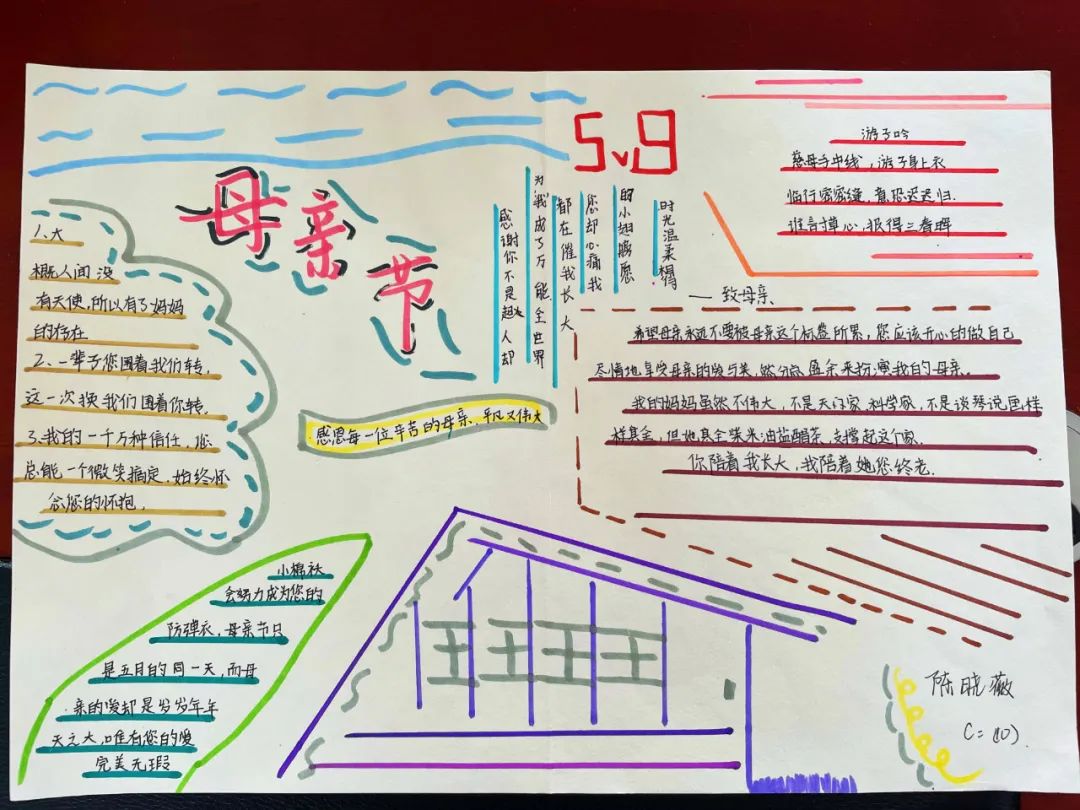 母亲节
5v9
感谢你不是超人却
为我成了万能全世界
都在催我长大
您却心痛我
的小翅膀愿
时光温柔相待
——致母亲
游子吟
慈母手中线,游子身上衣
临行密密缝,意恐迟迟归.
谁言寸草心,报得三春晖
1、大
概人间没
有天使,所以有了妈妈
的存在
2、一辈子您围着我们转,
这一次换我们围着你转.
3.我的一千万种信任,您
总能一个微笑搞定,始终怀
念您的怀抱.
感恩每一位辛苦的母亲,平凡又伟大
希望母亲永远不要被母亲这个枷锁所累,您应该开心的做自己
尽情地享受母亲的爱与美,然分点盈余来扮演我的母亲.
我的妈妈虽然不伟大,不是天门家,科学家,不是谈琴说画样
样具全,但她具全柴米油盐酱茶,支撑起这个家.
你陪着我长大,我陪着她您终老.
小棉袄
会努力成为您的
防弹衣,母亲节只
是五月的同一天,而母
亲的爱却是岁岁年年
天之大,唯有您的爱
完美无瑕
陈晓薇
C=(10)